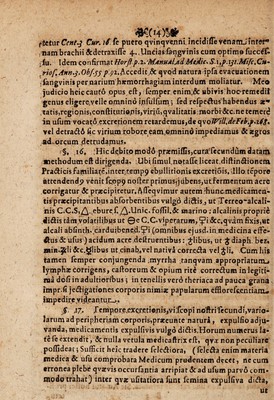 (14)
tetur Cent.3 Cur.18 se puero quinquenni incidisse venam, inter-
nam brachii & detraxisse 4. Uncias sangvinis cum optimo succes-
su. Idem confirmat Horst p.2. Manual. ad Medic. S.1, p.131. Misc. Cu-
rios. Ann.3. Obs.55 p.52. Accedit & quod natura ipsa evacuationem
sangvinis per narium hæmorrhagiam interdum moliatur. Meo
judicio heic cautô opus est, semper enim & ubivis hoc remedii
genus eligere, velle omninò insulsum; sed respectus habendus æ-
tatis, regionis, constitutionis, virium, qvalitatis morbi &c. ne temerè
in usum vocatô excretionem retardemus, de quo Will. de Febr. p.185.
vel detractô sic virium robore eam, omninò impediamus & ægros
ad orcum detrudamus.
§. 16. Hic debito modô præmissis, cura secundùm datam
methodum est dirigenda. Ubi simul, notasse liceat, distinctionem
Practicis familiarem, inter, tempꝰ ebullitionis excretiõis, Illo tẽpore
attendendũ venit scopo nostre primus, jubens, ut fermentum acre
corrigatur & præcipitetur, Assequimur autem hunc medicamen-
tis præcipitantibus absorbentibus vulgò dictis, ut Terreo-alcali-
nis C.C.S, eburs, Unic. fossil, & marino-alcalinis propriè
dictis tàm volatilibus ut C.C. vperatum, &c. quàm fixis, ut
alcali absinth. carduibened. (omnibus ejusd. in medicina effe-
ctus & usus) acidum acre destruentibus: libus, ut diaph. bez.
min. & libus ut cinab, vel nativâ correcta vel Cum his
tamen semper conjungenda, myrrha tanquam appropriatum,
lymphæ corrigens, castoreum & opium ritè correctum in legiti-
mâ dosi in adultioribus; in tenellis verò theriaca ad pauca grana
impr. si jectigationes corporis nimiæ papularum efflorescentiam,
impedire videantur.
§. 17. Tempore, excretionis, vi scopi nostri secundi, vario-
larum ad peripheriam corporis, præeunte naturâ, expulsio adju-
vanda, medicamentis expulsivis vulgò dictis. Horum numerus la-
tè se extendit, & nulla vetula medicastrix est, quæ non peculiare
possideat; Sufficit heic tradere selectiora, (selecta enim materia
medica & usu comprobata Medicum prudentem decet, ne cum
erronea plebe quævis occursantia arripiat & ad usum parvô com-
modo trahat) inter quæ usitatiora sunt semina expulsiva dicta,
ut